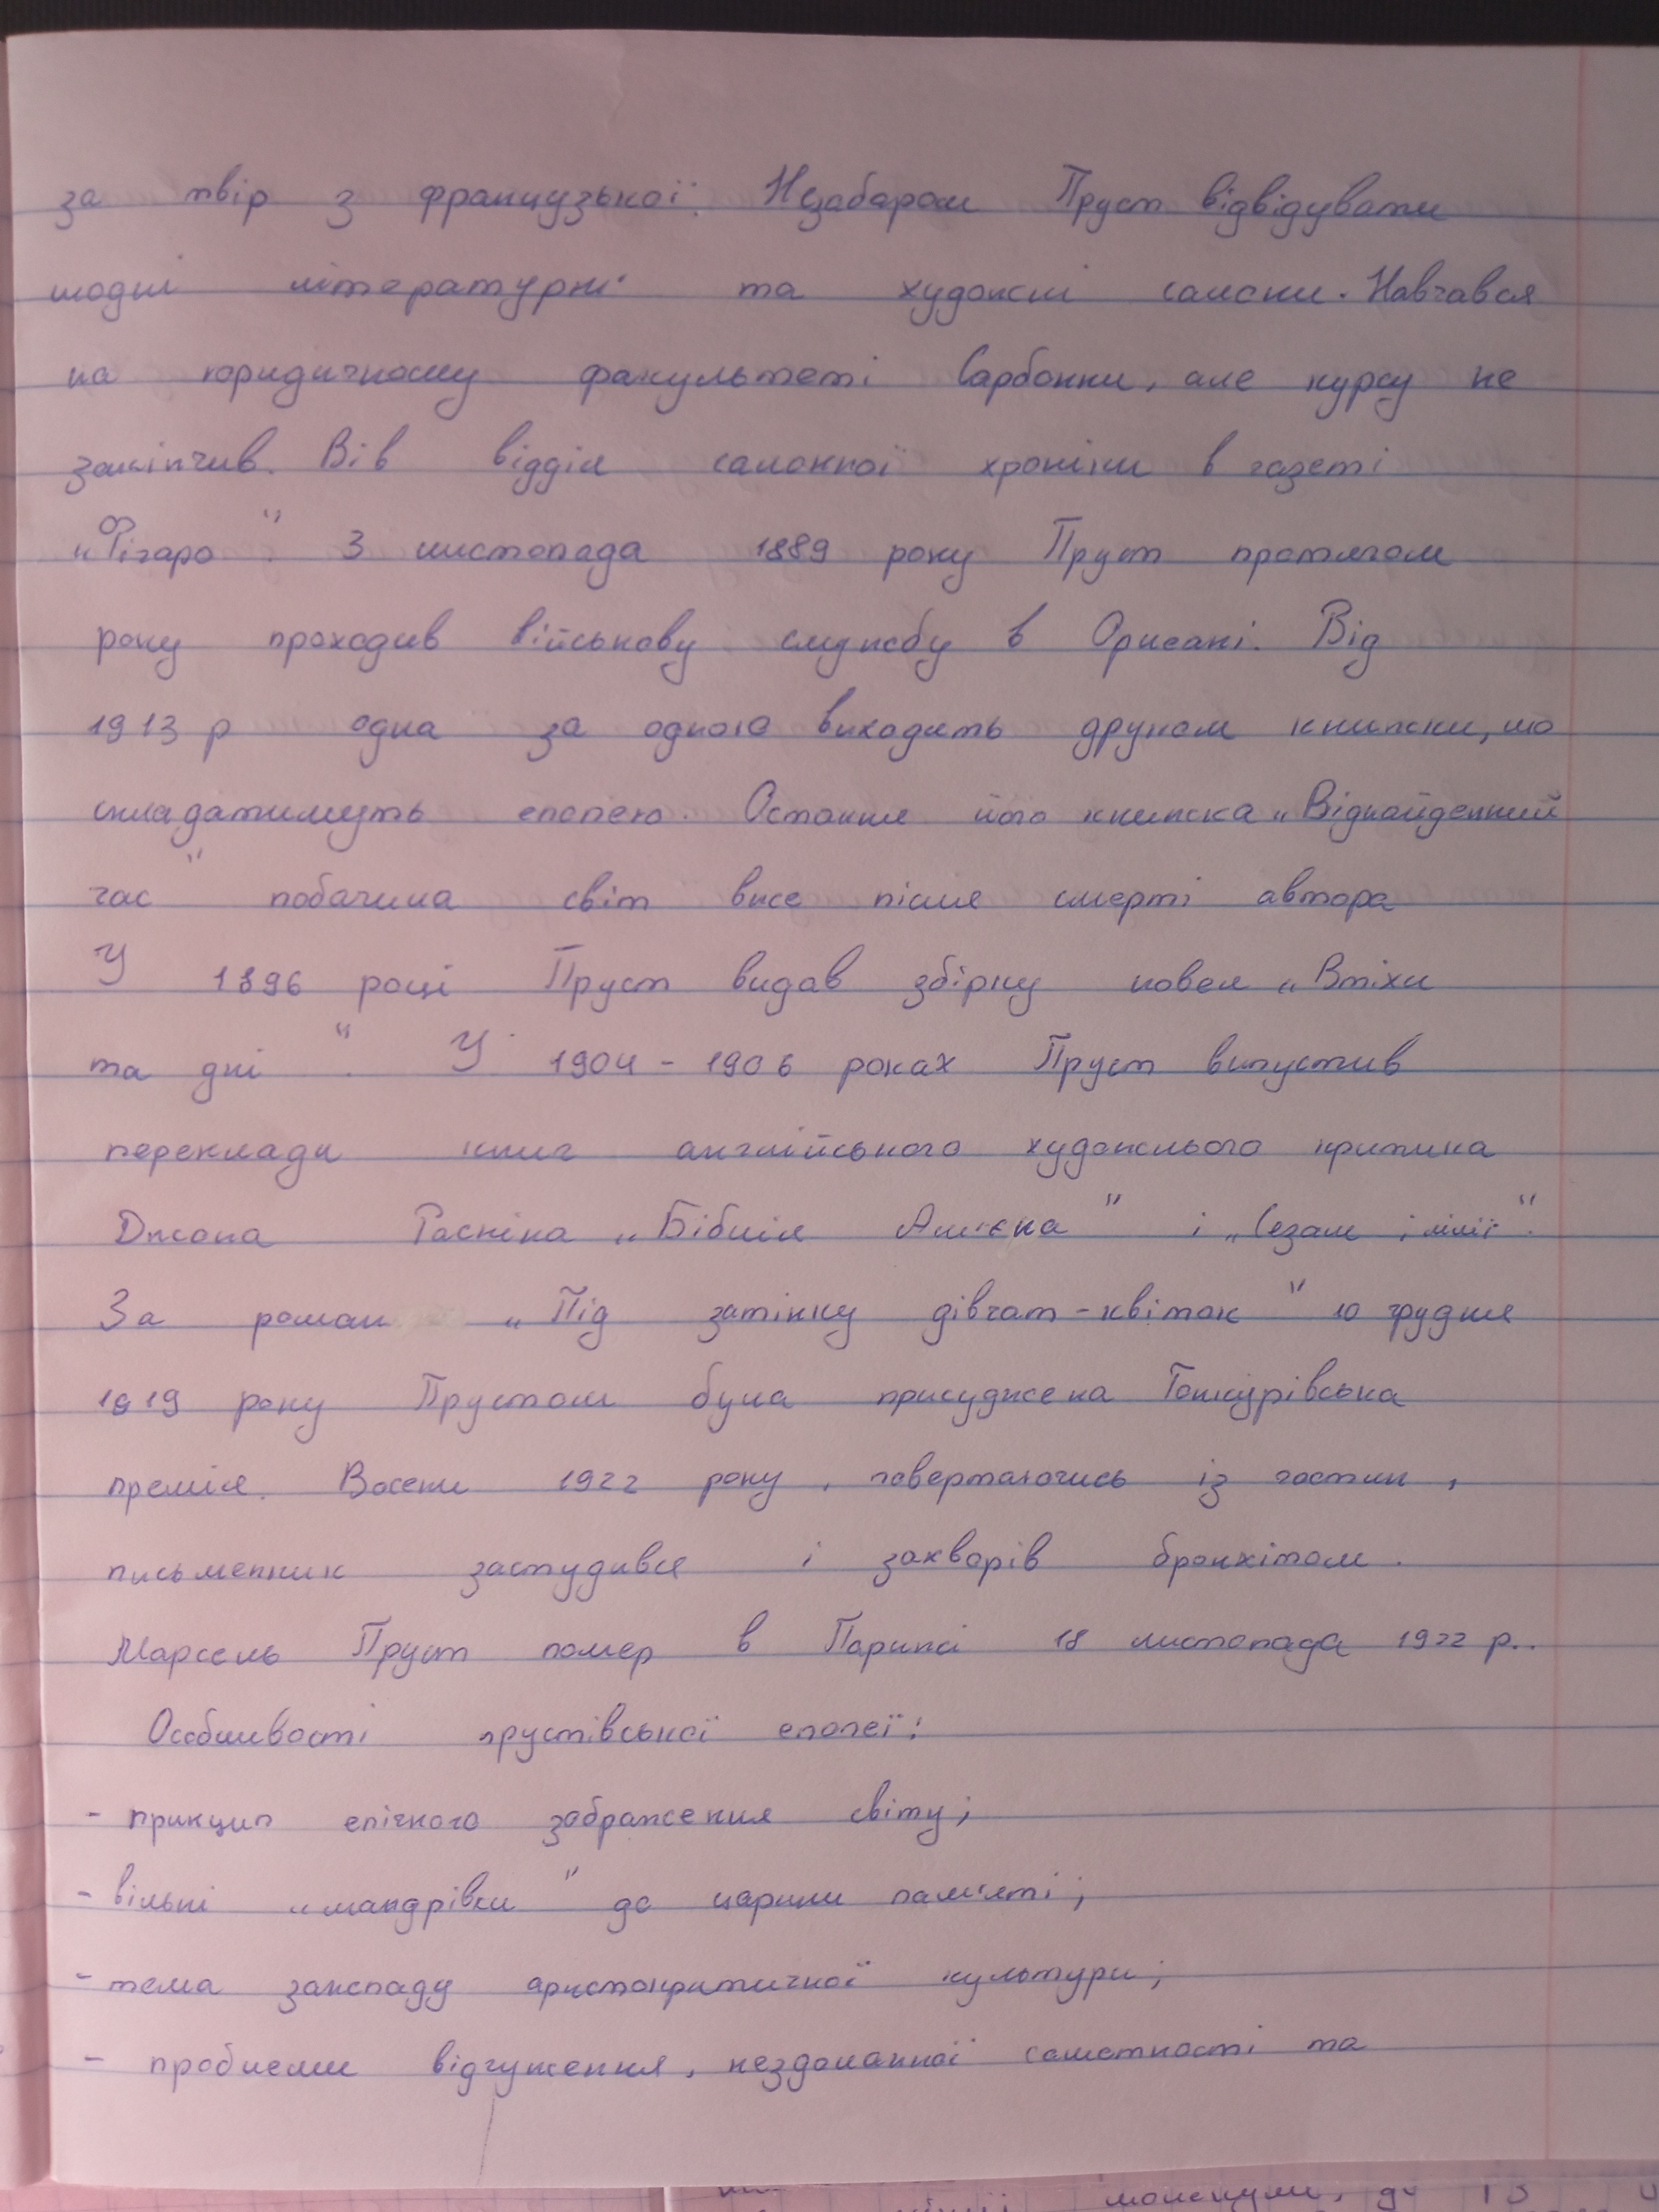 за твір з французької. Незабаром Пруст відвідувати
модні літературні та художні салони. Навчався
на юридичному факультеті Сарбонни, але курсу не
закінчив. Вів відділ салонної хроніки в газеті
„Фігаро". З листопада 1889 року Пруст протягом
року проходив військову службу в Орлеані. Від
1913 р одна за одною виходить друком книжки, що
складатимуть епопею. Остання його книжка „Віднайденний
час" побачила світ вже після смерті автора
У 1896 році Пруст видав збірку новел „Втіхи
та дні". У 1904 - 1906 роках Пруст випустив
переклади книг англійського художнього критика
Джона Раскіна „Біблія Амієна" і „Сезам і лілії".
За роман „Під затінку дівчат-квіток" 10 грудня
1919 року Прустом була присуджена Гонкурівська
премія. Восени 1922 року, повертаючись із гостин,
письменник застудився і захворів бронхітом.
Марсель Пруст помер в Парижі 18 листопада 1922 р..
Особливості прустівської епопеї:
- принцип епічного зображення світу;
- вільні „мандрівки" до царини пам'яті;
- тема занепаду аристократичної культури;
- проблеми відчуження, нездоланної самотності та
молекули, до 13